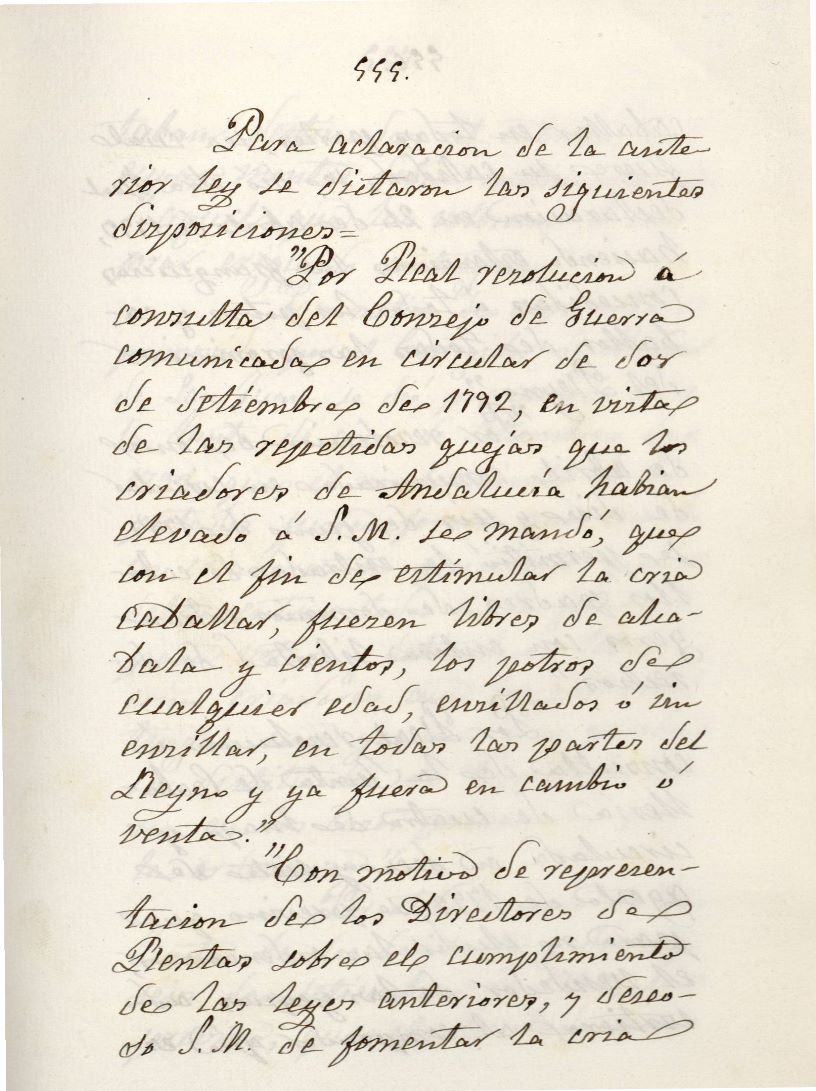 555.
Para aclaracion de la ante-
rior ley se dictaron las siguientes
disposiciones=
"Por Real resolucion á
consulta del Consejo de Guerra
comunicada en circular de dos
de setiembre de 1792, en vista
de las repetidas quejas que los
criadores de Andalucía habian
elevado á S. M. se mandó, que
con el fin de estimular la cria
caballar, fuesen libres de alca-
bala y cientos, los potros de
cualquier edad, ensillados ó sin
ensillar, en todas las partes del
Reyno y ya fuera en cambio ó
venta."
"Con motivo de represen-
tacion de los Directores de
Rentas sobre el cumplimiento
de las leyes anteriores, y deseo-
so S. M. de fomentar la cria